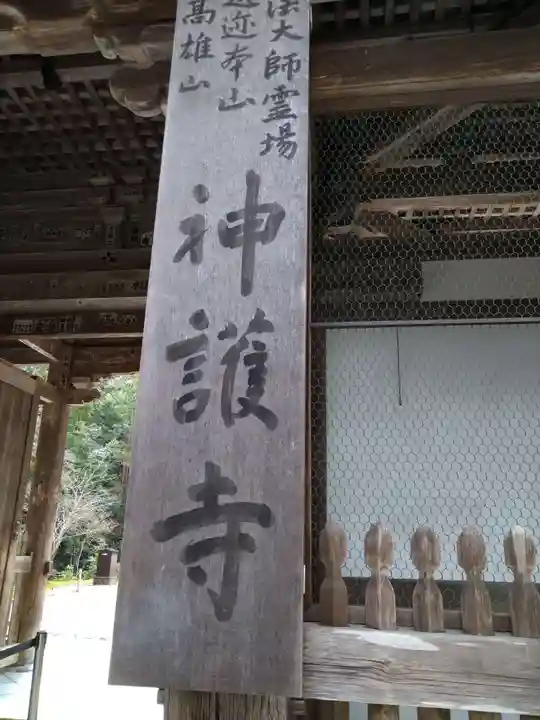 法大師霊場
遺迹本山
高雄山
神護寺